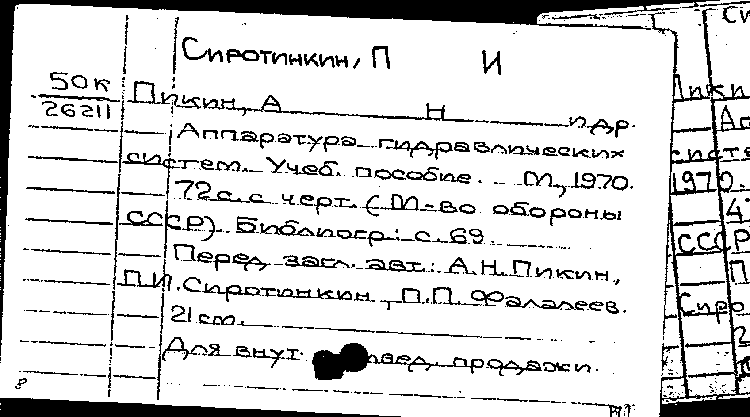 Сиротинкин, П И
50к
26211
Пикин, А Н и др.
Аппаратура гидравлических
систем. Учеб. пособие. М., 1970.
72 с. с черт. (М-во обороны
СССР). Библиогр.: с. 69.
Перед загл. авт.: А.Н. Пикин,
П.И. Сиротинкин, П.П. Фалалеев.
21 см.
Для внут. вед. продажи.
8
1970.
СССР
Сиро